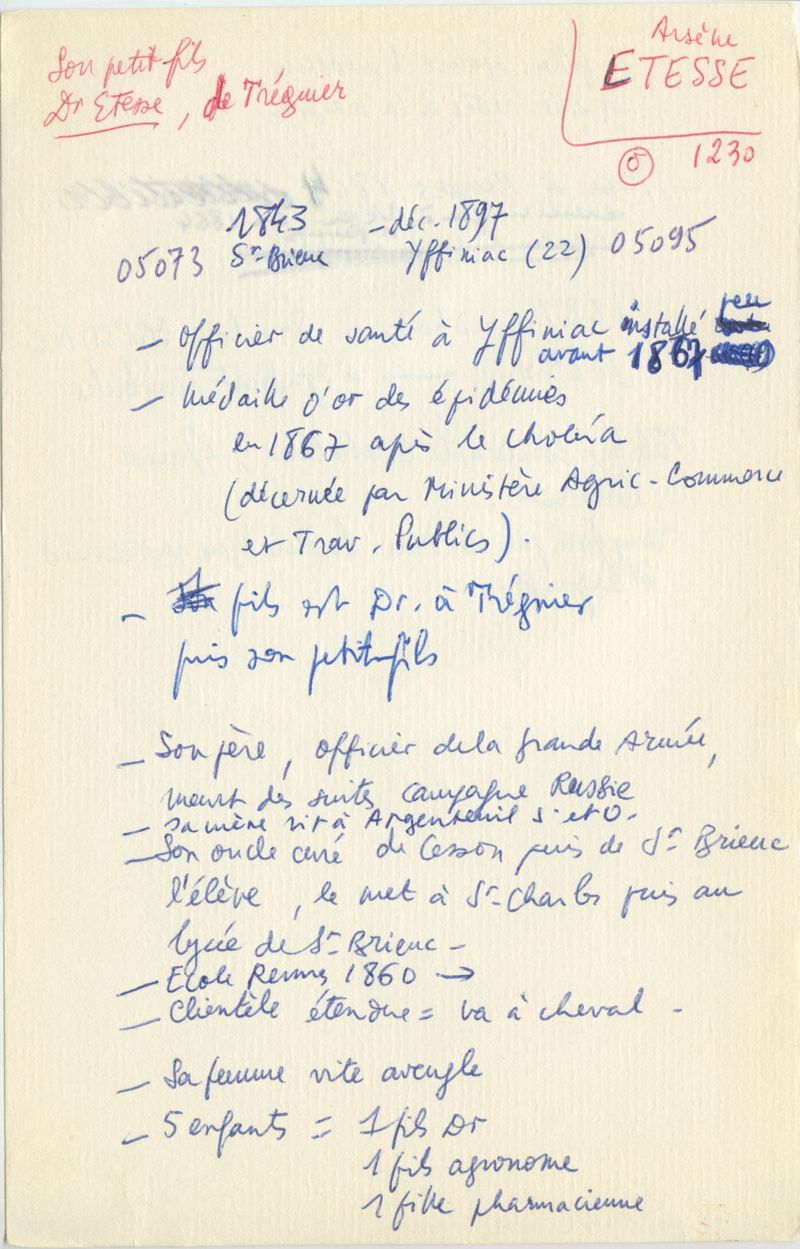 Son petit fils
Dr Etesse, de Tréguier
Arsène
ETESSE
O 1230
1843 - déc. 1897
05073 St-Brieuc Yffiniac (22) 05095
- Officier de santé à Yffiniac installé peu
avant 1867
- Médaille d'or des épidémies
en 1867 après le choléra
(décernée par Ministère Agric-Commerce
et Trav. Publics).
- 1 fils est Dr. à Tréguier
puis son petit-fils
- Son père, officier de la grande Armée,
meurt des suites campagne Russie
- sa mère vit à Argenteuil S. et O.
- Son oncle curé de Cesson puis de St Brieuc
l'élève, le met à St-Charles puis au
lycée de St-Brieuc -
- Ecole Rennes 1860 →
- Clientèle étendue = va à cheval -
- Sa femme vite aveugle
- 5 enfants = 1 fils Dr
1 fils agronome
1 fille pharmacienne